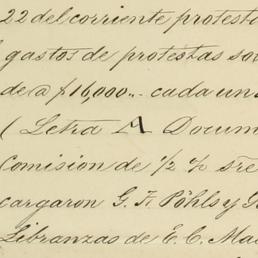 22 del corriente protesta
gastos de protestas so
de a $16,000.. cada un
(Letra A Docum
Comision de 1/2 % s/re
cargaron G. Fr. Pöhls y
Libranzas de E. C. Mac